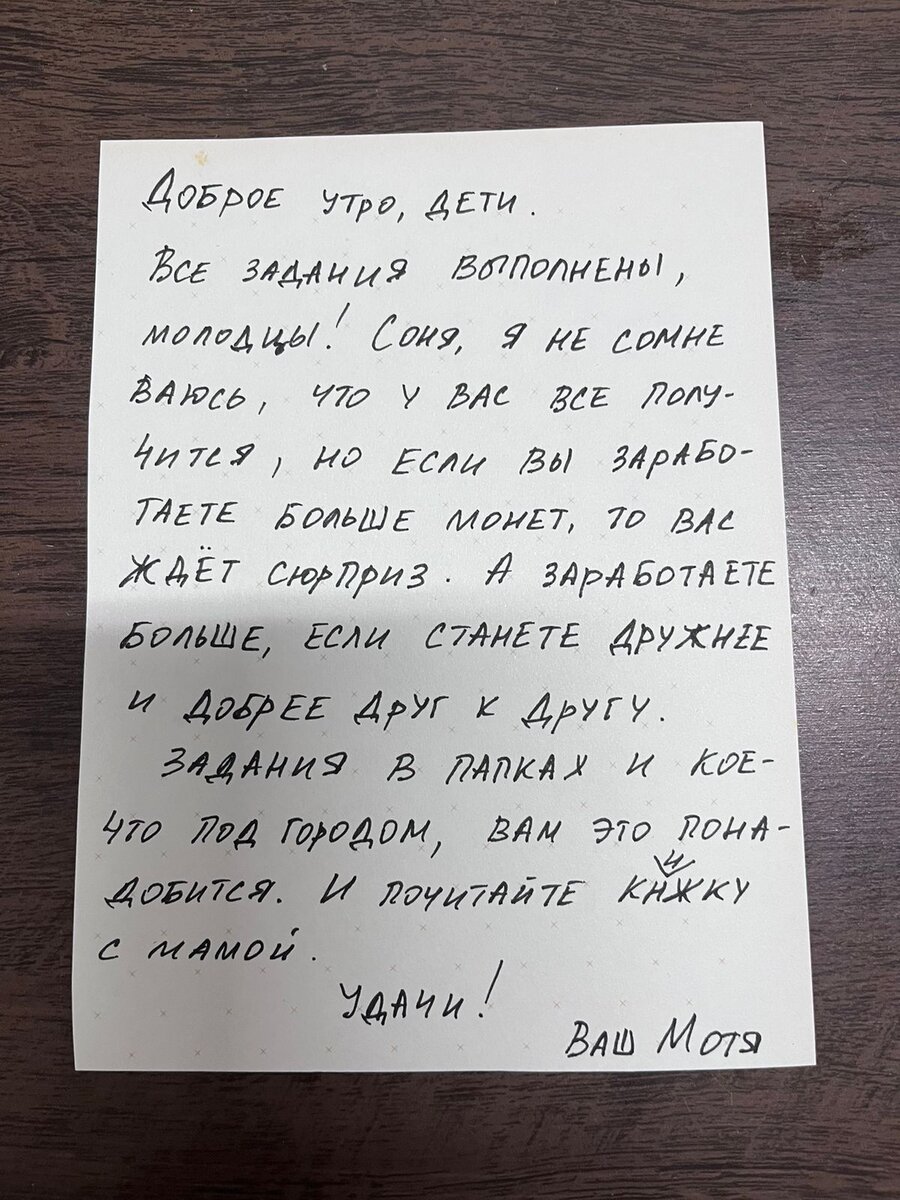 Доброе утро, дети.
Все задания выполнены,
молодцы! Соня, я не сомне
ваюсь, что у вас все полу-
чится, но если вы зарабо-
таете больше монет, то вас
ждёт сюрприз. А заработаете
больше, если станете дружнее
и добрее друг к другу.
Задания в папках и кое-
что под городом, вам это пона-
добится. И почитайте книжку
с мамой.
Удачи!
Ваш Мотя